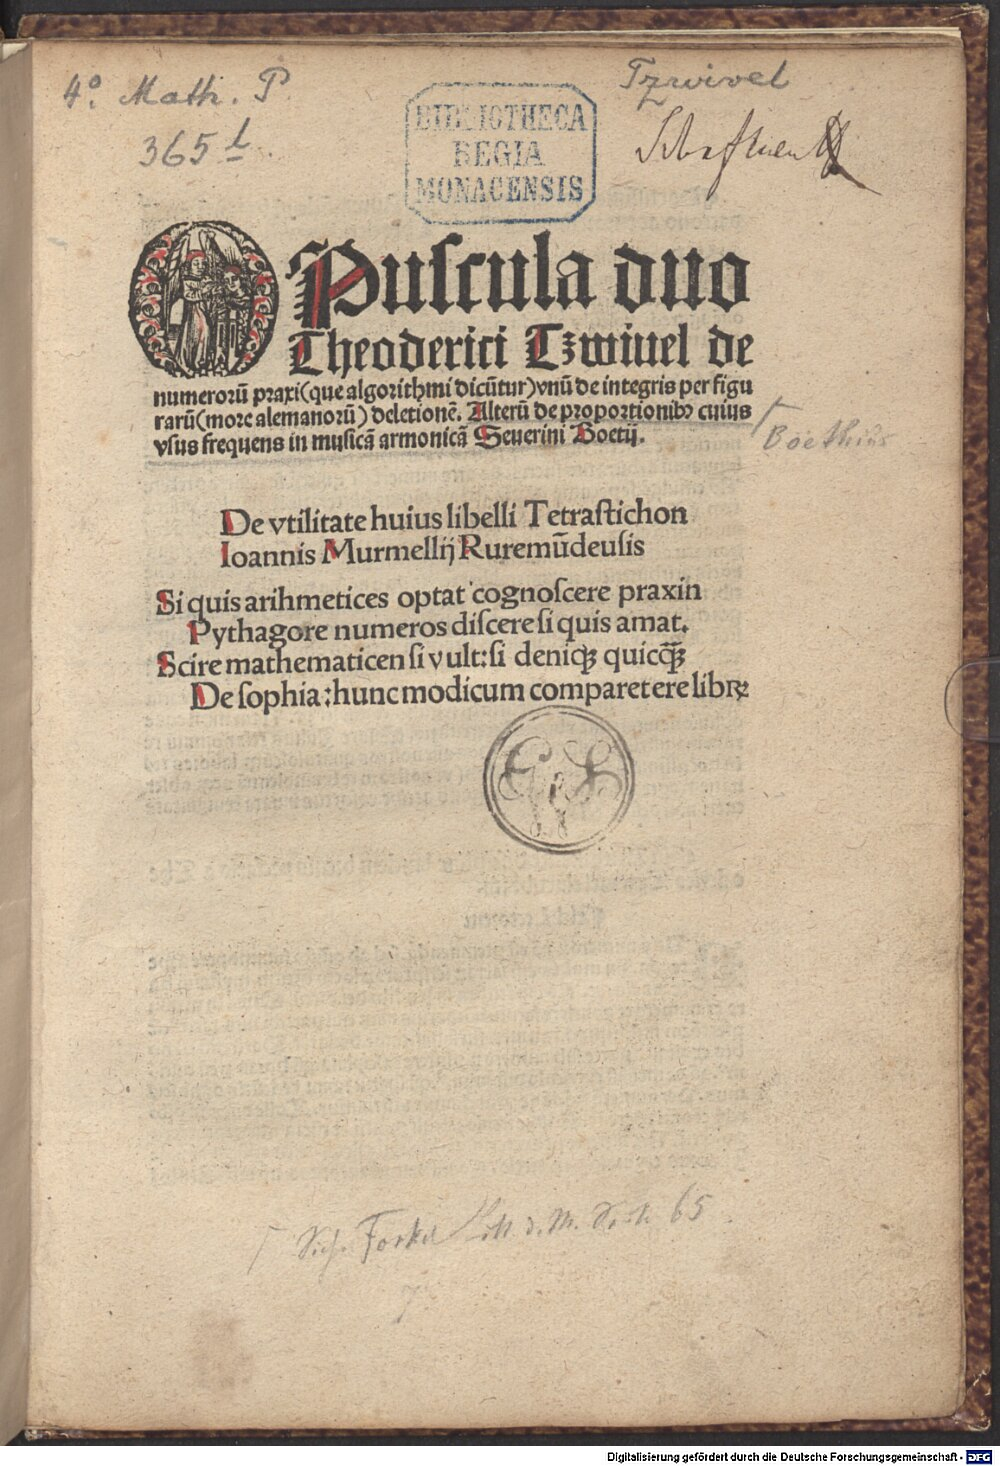 4°. Math. P
365 l
Tzwivel
BIBLIOTHECA
REGIA
MONACENSIS
OPuſcula duo
Theoderici Tzwiuel de
numerorū praxi(que algorithmi dicūtur)vnū de integris per figu
rarū(more alemanorū) deletionē. Alterū de proportionibꝰ cuius
vſus frequens in muſicā armonicā Seuerini Boetij.
Boethius
De vtilitate huius libelli Tetraſtichon
Ioannis Murmellij Ruremūdeuſis
Si quis arihmetices optat cognoſcere praxin
Pythagore numeros diſcere ſi quis amat.
Scire mathematicen ſi vult:ſi deniqꝫ quicq̄ꝫ
De ſophia:hunc modicum comparet ere librꝝ
Sieh. Forkel Litt d. M. 65
Digitalisierung gefördert durch die Deutsche Forschungsgemeinschaft - DFG